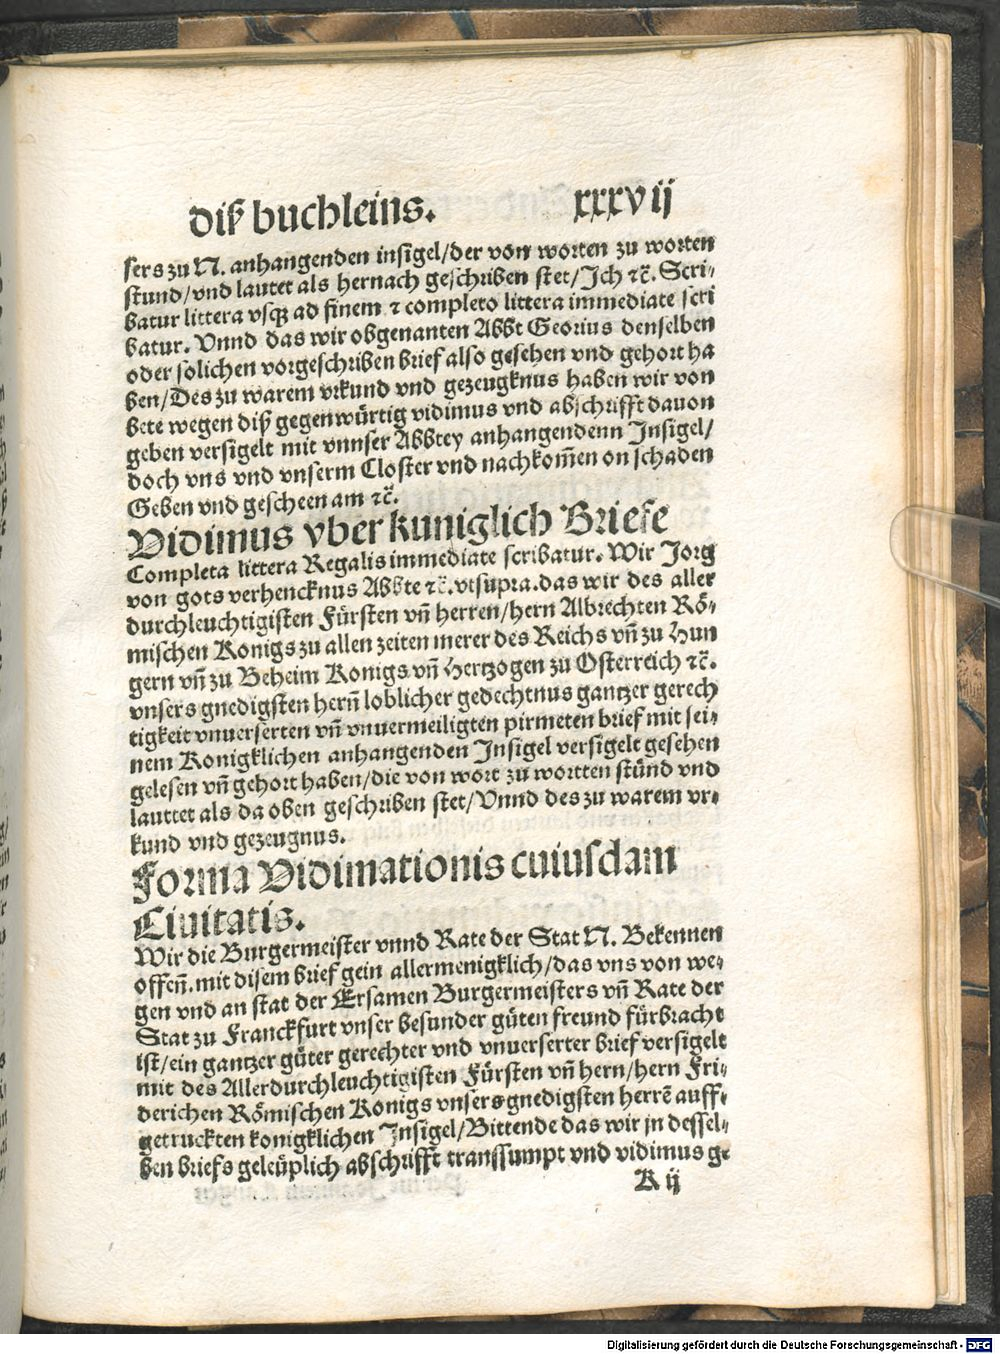 diß buchleins. xxxvij
sers zu N. anhangenden insigel/der von worten zu worten
stund/vnd lautet als hernach geschriben stet/Ich ⁊c̃. Scri⸗
batur littera vsqꝫ ad finem ⁊ completo littera immediate scri
batur. Vnnd das wir obgenanten Abbt Georius denselben
oder solichen vorgeschriben brief also gesehen vnd gehort ha
ben/Des zu warem vrkund vnd gezeugknus haben wir von
bete wegen diß gegenwürtig vidimus vnd abschrifft dauon
geben versigelt mit vnnser Abbtey anhangendenn Insigel/
doch vns vnd vnserm Closter vnd nachkom̃en on schaden
Geben vnd gescheen am ⁊c̃.
Vidimus vber kuniglich Briefe
Completa littera Regalis immediate scribatur. Wir Jorg
von gots verhencknus Abbte ⁊c̃. vtsupra. das wir des aller
durchleuchtigisten Fürsten vñ herren/hern Albrechten Rö⸗
mischen Konigs zu allen zeiten merer des Reichs vñ zu Hun
gern vñ zu Beheim Konigs vñ Hertzogen zu Osterreich ⁊c̃.
vnsers gnedigsten herñ loblicher gedechtnus gantzer gerech
tigkeit vnuerserten vñ vnuermeiligten pirmeten brief mit sei⸗
nem Konigklichen anhangenden Insigel versigelt gesehen
gelesen vñ gehort haben/die von wort zu wortten stünd vnd
lauttet als da oben geschriben stet/Vnnd des zu warem vr⸗
kund vnd gezeugnus.
Forma Vidimationis cuiusdam
Ciuitatis.
Wir die Burgermeister vnnd Rate der Stat N. Bekennen
offeñ. mit disem brief gein allermenigklich/das vns von we⸗
gen vnd an stat der Ersamen Burgermeisters vñ Rate der
Stat zu Franckfurt vnser besunder güten freund fürbracht
ist/ein gantzer güter gerechter vnd vnuerserter brief versigelt
mit des Allerdurchleuchtigisten Fürsten vñ hern/hern Fri⸗
derichen Römischen Konigs vnsers gnedigsten herrẽ auff⸗
getruckten konigklichen Insigel/Bittende das wir in dessel⸗
ben briefs geleüplich abschrifft transsumpt vnd vidimus ge
K ij
Digitalisierung gefördert durch die Deutsche Forschungsgemeinschaft - DFG